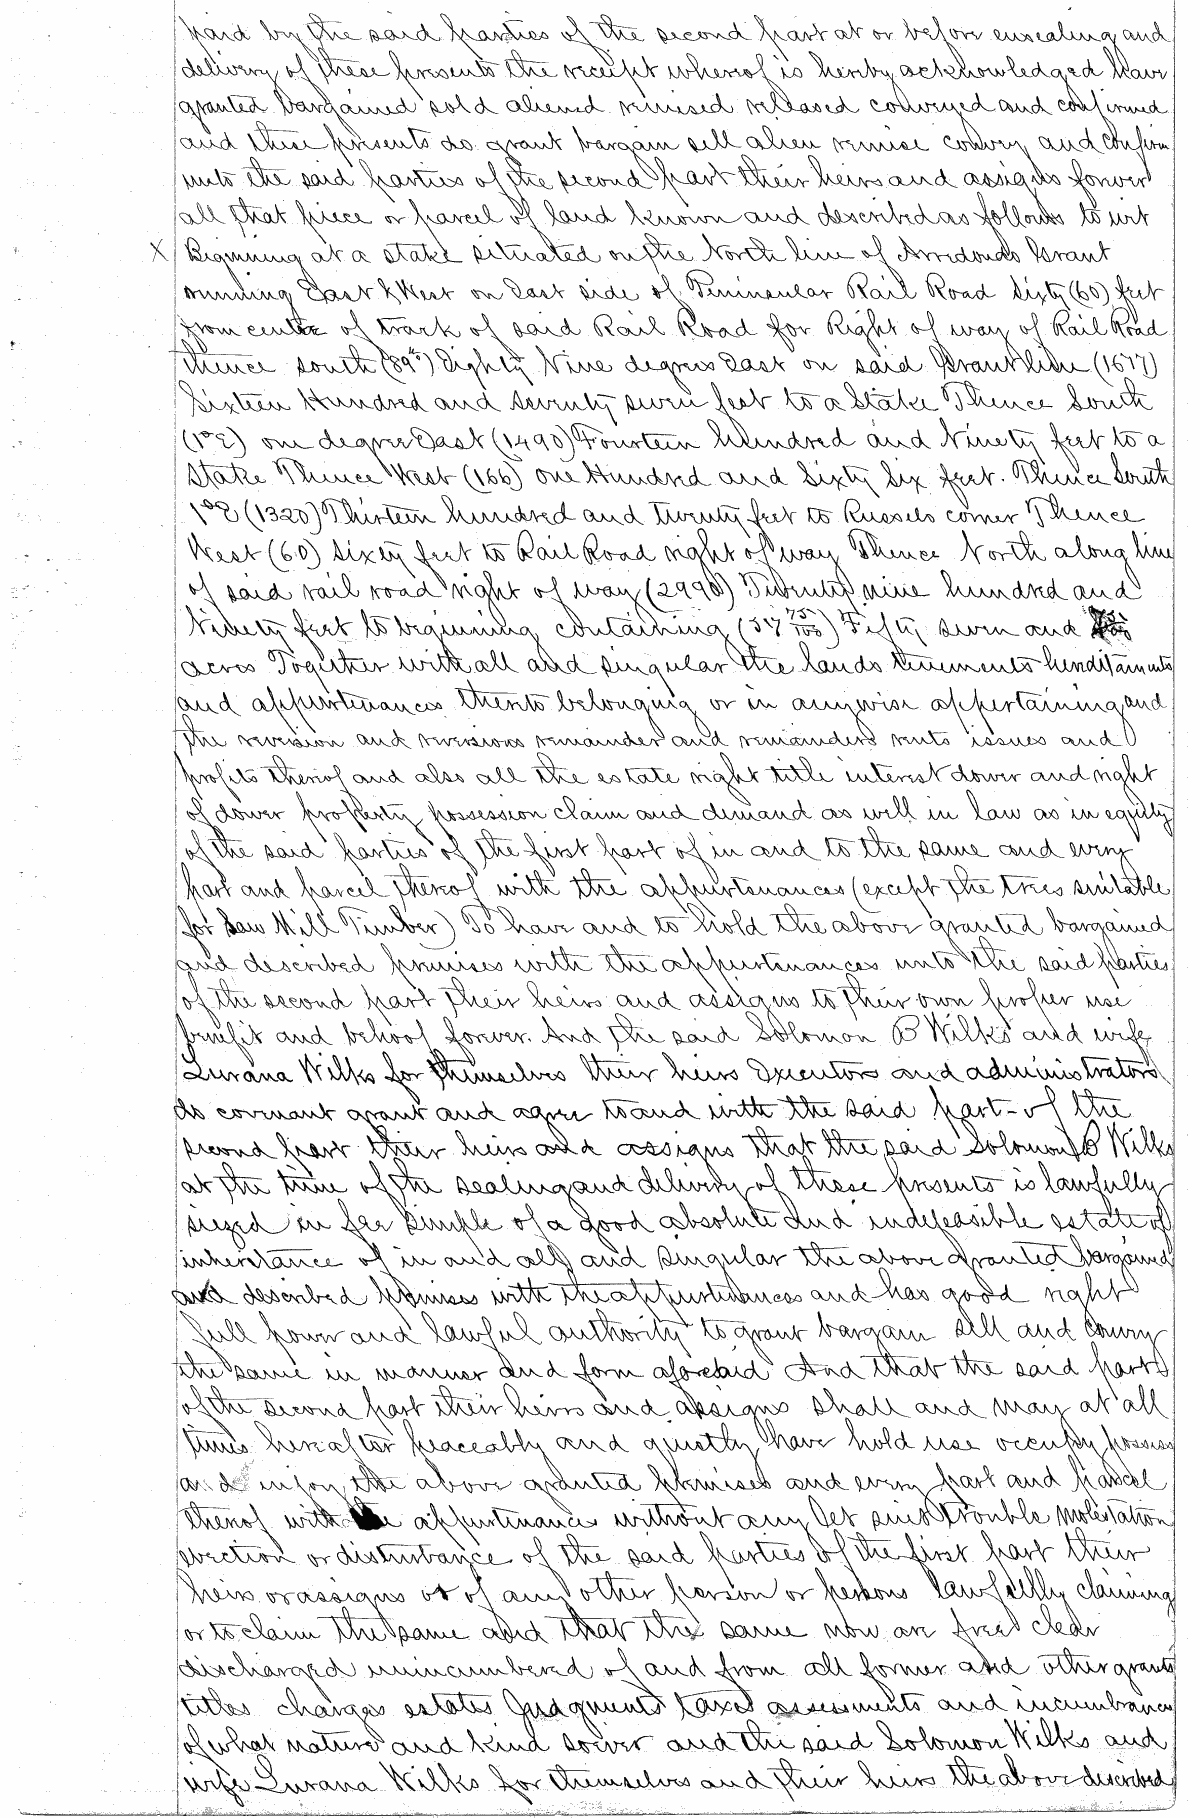 paid by the said parties of the second part at or before ensealing and
delivery of these presents the receipt whereof is hereby acknowledged have
granted bargained sold aliened remised released conveyed and confirmed
and these presents do grant bargain sell alien remise convey and confirm
unto the said parties of the second part their heirs and assigns forever
all that piece or parcel of land known and described as follows to wit
X Beginning at a stake situated on the North line of Arredondo Grant
running East & West on East side of Peninsular Rail Road Sixty (60) feet
from centre of track of said Rail Road for Right of way of Rail Road
thence south (89°) Eighty Nine degrees East on said Grant line (1677)
Sixteen Hundred and Seventy seven feet to a Stake Thence South
(1°E) one degree East (1490) Fourteen hundred and Ninety feet to a
Stake Thence West (166) one Hundred and Sixty Six feet. Thence South
1°E (1320) Thirteen hundred and twenty feet to Russels corner Thence
West (60) Sixty feet to Rail Road right of way Thence North along line
of said rail road right of way (2990) Twenty nine hundred and
Ninety feet to beginning containing (57 75/100) Fifty seven and
acres Together with all and singular the lands tenements hereditaments
and appurtenances thereto belonging or in anywise appertaining and
the reversion and reversions remainder and remainders rents issues and
profits thereof and also all the estate right title interest dower and right
of dower property possession claim and demand as well in law as in equity
of the said parties of the first part of in and to the same and every
part and parcel thereof with the appurtenances (except the trees suitable
for Saw Mill Timber) To have and to hold the above granted bargained
and described premises with the appurtenances unto the said parties
of the second part their heirs and assigns to their own proper use
benefit and behoof forever. And the said Solomon B Wilks and wife
Lurana Wilks for themselves their heirs Executors and administrators
do covenant grant and agree to and with the said part- of the
second part their heirs and assigns that the said Solomon B Wilks
at the time of the sealing and delivery of these presents is lawfully
siezed in fee simple of a good absolute and indefeasible estate of
inheritance of in and all and singular the above granted bargained
and described premises with the appurtenances and has good right
full power and lawful authority to grant bargain sell and convey
the same in manner and form aforesaid And that the said parts
of the second part their heirs and assigns shall and may at all
times hereafter peaceably and quietly have hold use occupy possess
and enjoy the above granted premises and every part and parcel
thereof with the appurtenances without any let suit trouble molestation
eviction or disturbance of the said parties of the first part their
heirs or assigns or of any other person or persons lawfully claiming
or to claim the same and that the same now are free clear
discharged unincumbered of and from all former and other grants
titles charges estates Judgments taxes assessments and incumbrances
of what nature and kind soever and the said Solomon Wilks and
wife Lurana Wilks for themselves and their heirs the above described